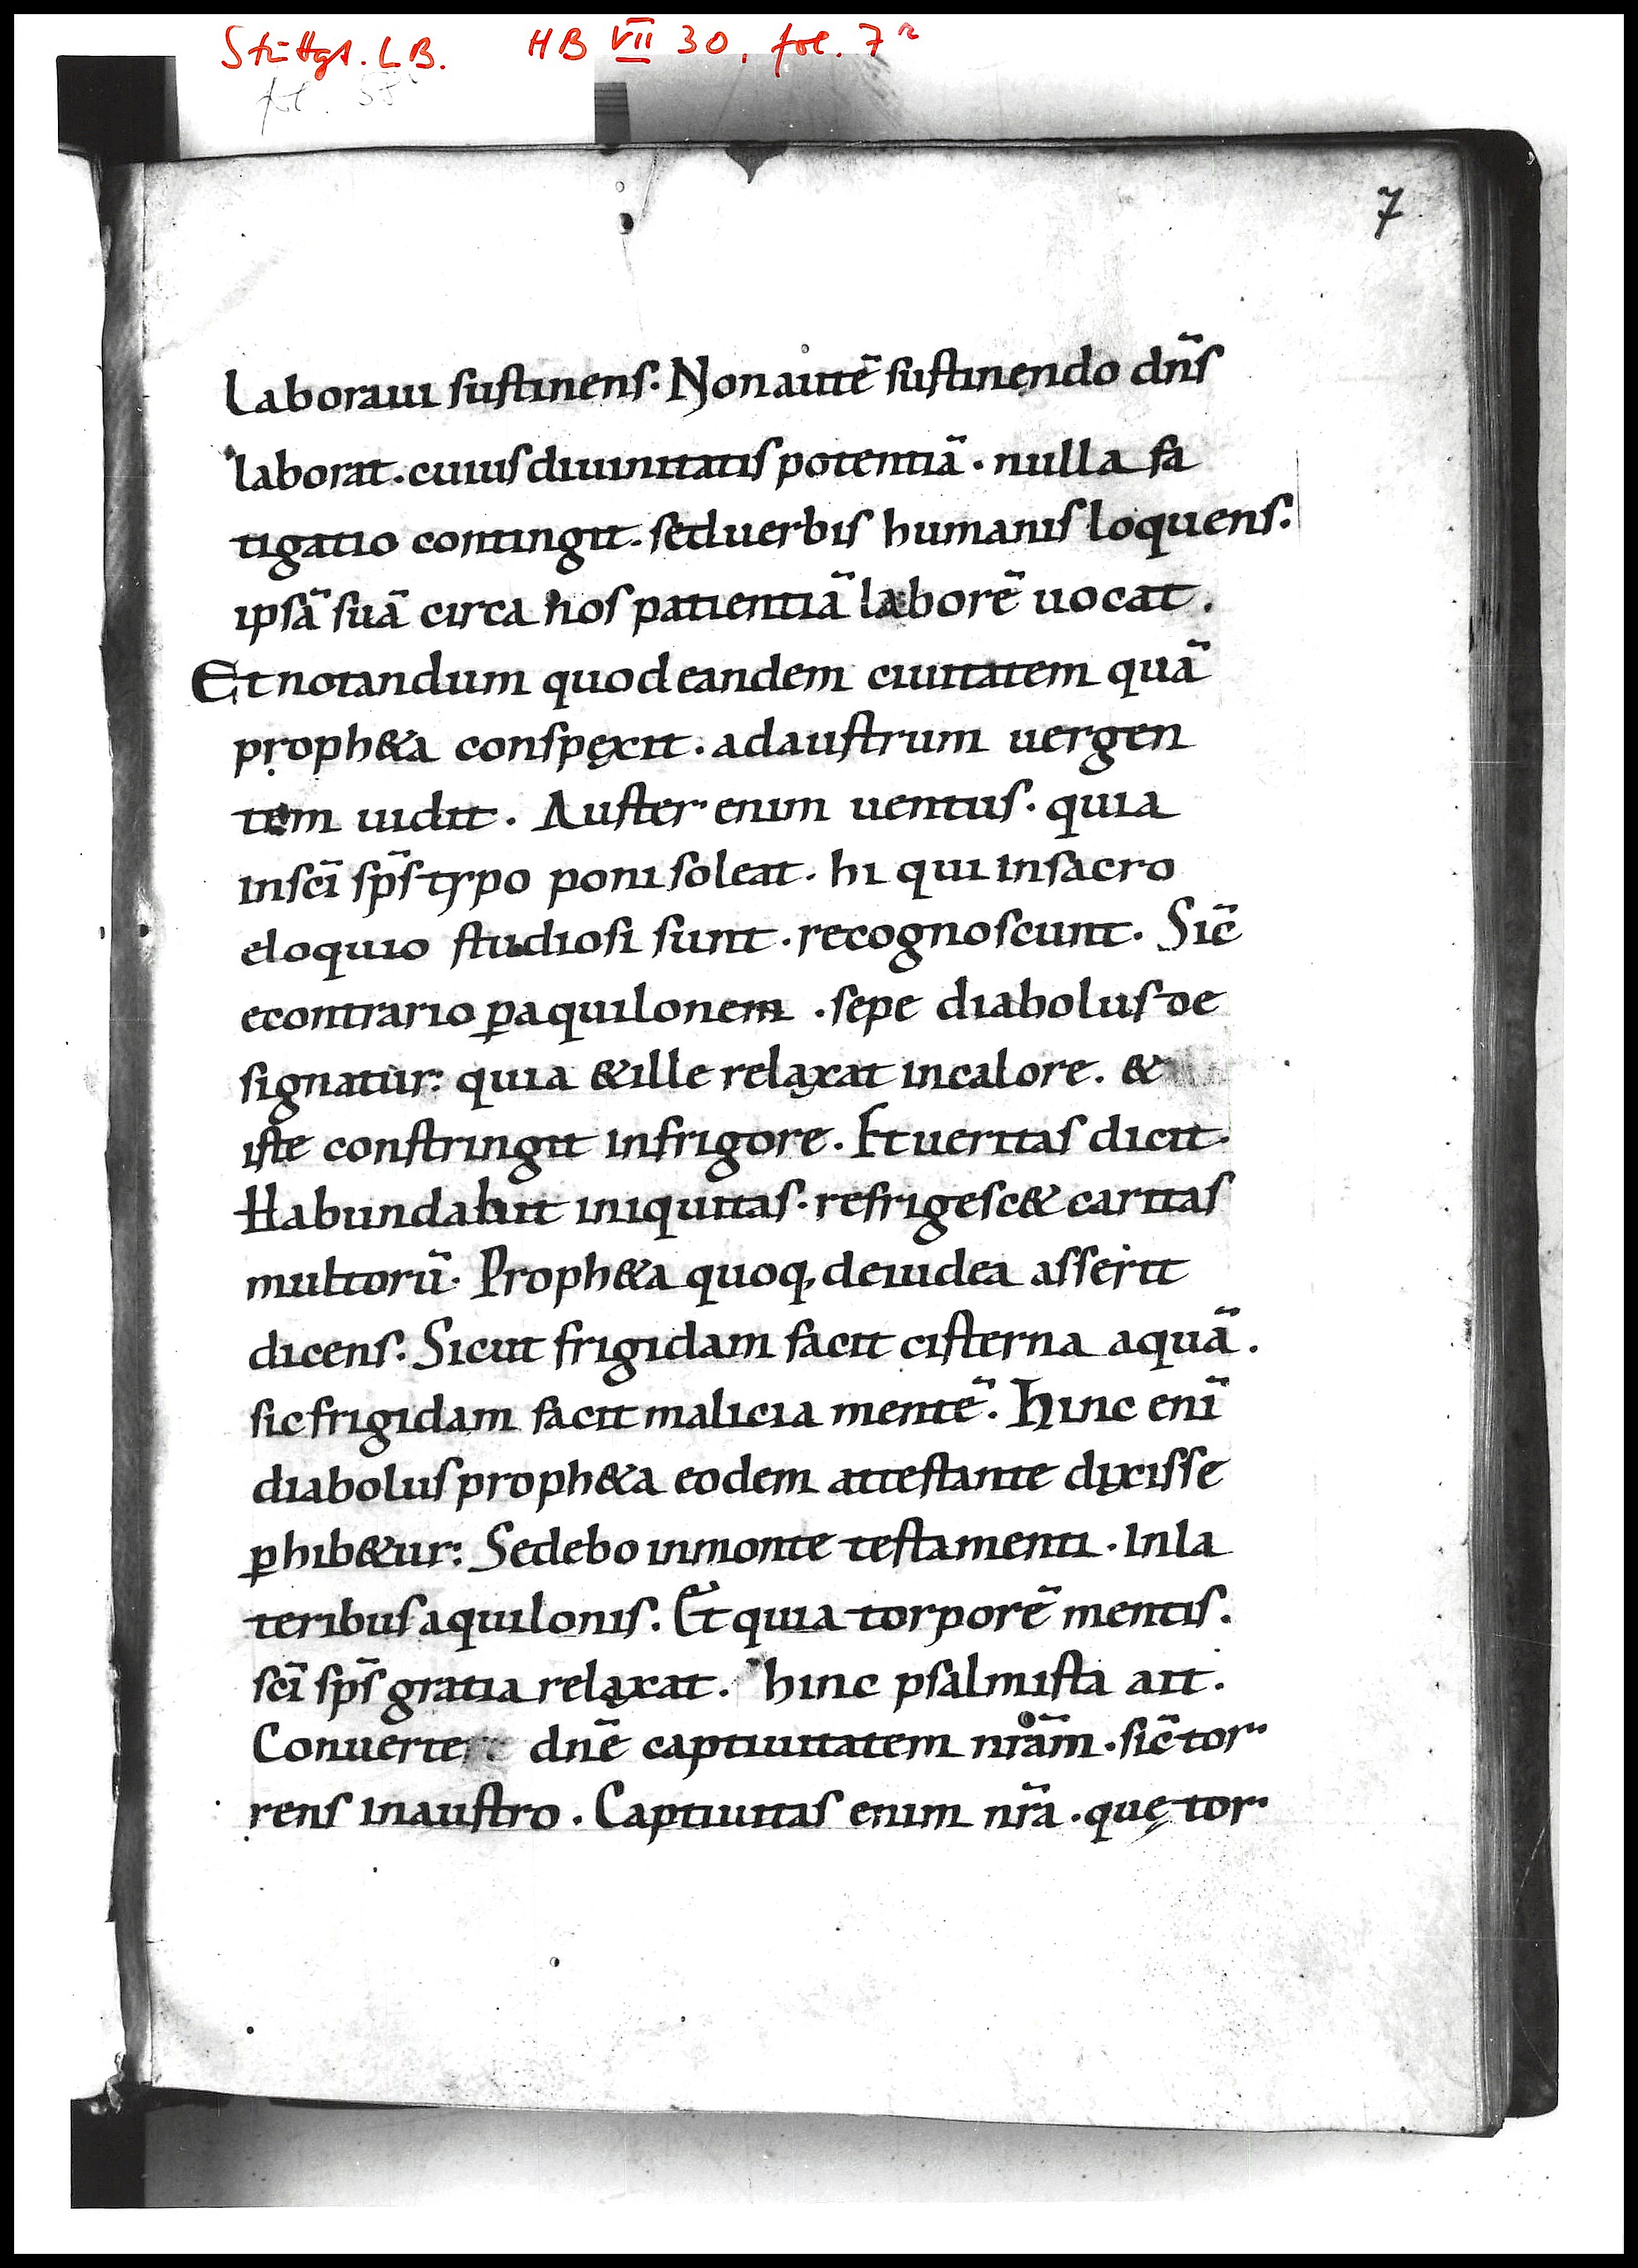 Stuttgt. LB. HB VII 30, fol. 7r
fol.
7
Laboraui sustinens. Non autē sustinendo dn̄s
laborat. cuius diuinitatis potentiā. nulla fa
tigatio contingit. sed uerbis humanis loquens.
ipsā suā circa nos patientiā laborē uocat.
Et notandum quod eandem ciuitatem quā
proph&a conspexit. ad austrum uergen
tem uidit. Auster enim uentus. quia
in sc̄i sp̄s typo poni soleat. hi qui in sacro
eloquio studiosi sunt. recognoscunt. Sic̄
econtrario ꝑ aquilonem. sepe diabolus de
signatur: quia & ille relaxat in calore. &
iste constringit in frigore. Et ueritas dicit.
Habundabit iniquitas. refrigesc& caritas
multorū. Proph&a quoq, de iudea asserit
dicens: Sicut frigidam facit cisterna aquā.
sic frigidam facit malicia mentē. Hinc enī
diabolus proph&a eodem attestante dixisse
ꝑhib&ur: Sedebo in monte testamenti. In la
teribus aquilonis. Et quia torporē mentis.
sc̄i sp̄s gratia relaxat. hinc psalmista ait.
Conuerte dn̄e captiuitatem nr̄am. sic̄ tor
rens in austro. Captiuitas enim nr̄a. quę tor